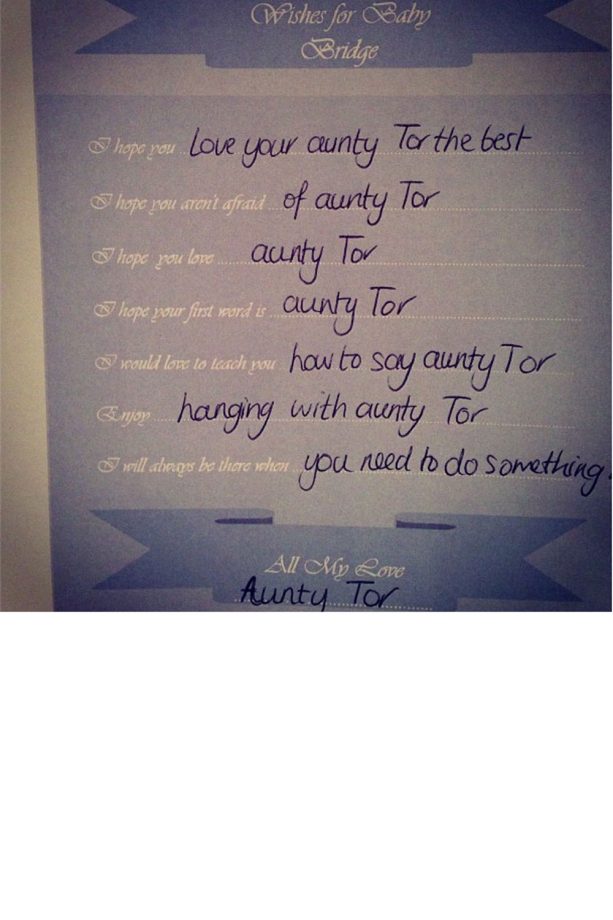 Wishes for Baby
Bridge
I hope you love your aunty Tor the best
I hope you aren't afraid of aunty Tor
I hope you love aunty Tor
I hope your first word is aunty Tor
I would love to teach you how to say aunty Tor
Enjoy hanging with aunty Tor
I will always be there when you need to do something.
All My Love
Aunty Tor